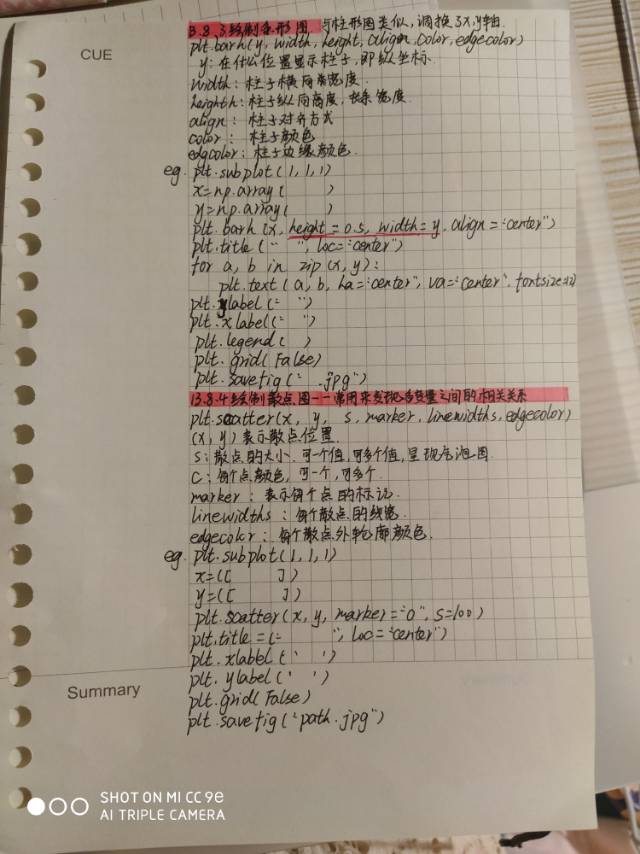 13.8.3绘制条形图 与柱形图类似,调换了x,y轴.
plt.barh(y, width, height, align, color, edgecolor)
y: 在什么位置显示柱子,即纵坐标.
width: 柱子横向宽度.
heighth: 柱子纵向高度,宽度.
align: 柱子对齐方式
color: 柱子颜色
edgcolor: 柱子边缘颜色.
CUE
eg. plt.subplot(1,1,1)
x=np.array( )
y=np.array( )
plt.barh (x, height=0.5, width=y, align="center")
plt.title (" ", loc="center")
for a, b in zip (x, y):
plt.text (a, b, ha="center", va="center", fontsize=12)
plt.ylabel(" ")
plt.xlabel(" ")
plt.legend( )
plt.grid(False)
plt.savefig(" .jpg")
13.8.4绘制散点图——常用来发现各变量之间的相关关系
plt.scatter(x, y, s, marker, linewidths, edgecolor)
(x, y) 表示散点位置.
s: 散点的大小.可一个值,可多个值,呈现气泡图.
C: 每个点颜色,可一个,可多个.
marker: 表示每个点的标记.
linewidths: 每个散点的线宽.
edgecolor: 每个散点外轮廓颜色.
eg. plt.subplot(1,1,1)
x=([ ])
y=([ ])
plt.scatter(x, y, marker="o", s=100)
plt.title=(" ", loc="center")
plt.xlabel(' ')
plt.ylabel(' ')
plt.grid(False)
plt.savefig("path.jpg")
Summary
SHOT ON MI CC 9e
AI TRIPLE CAMERA